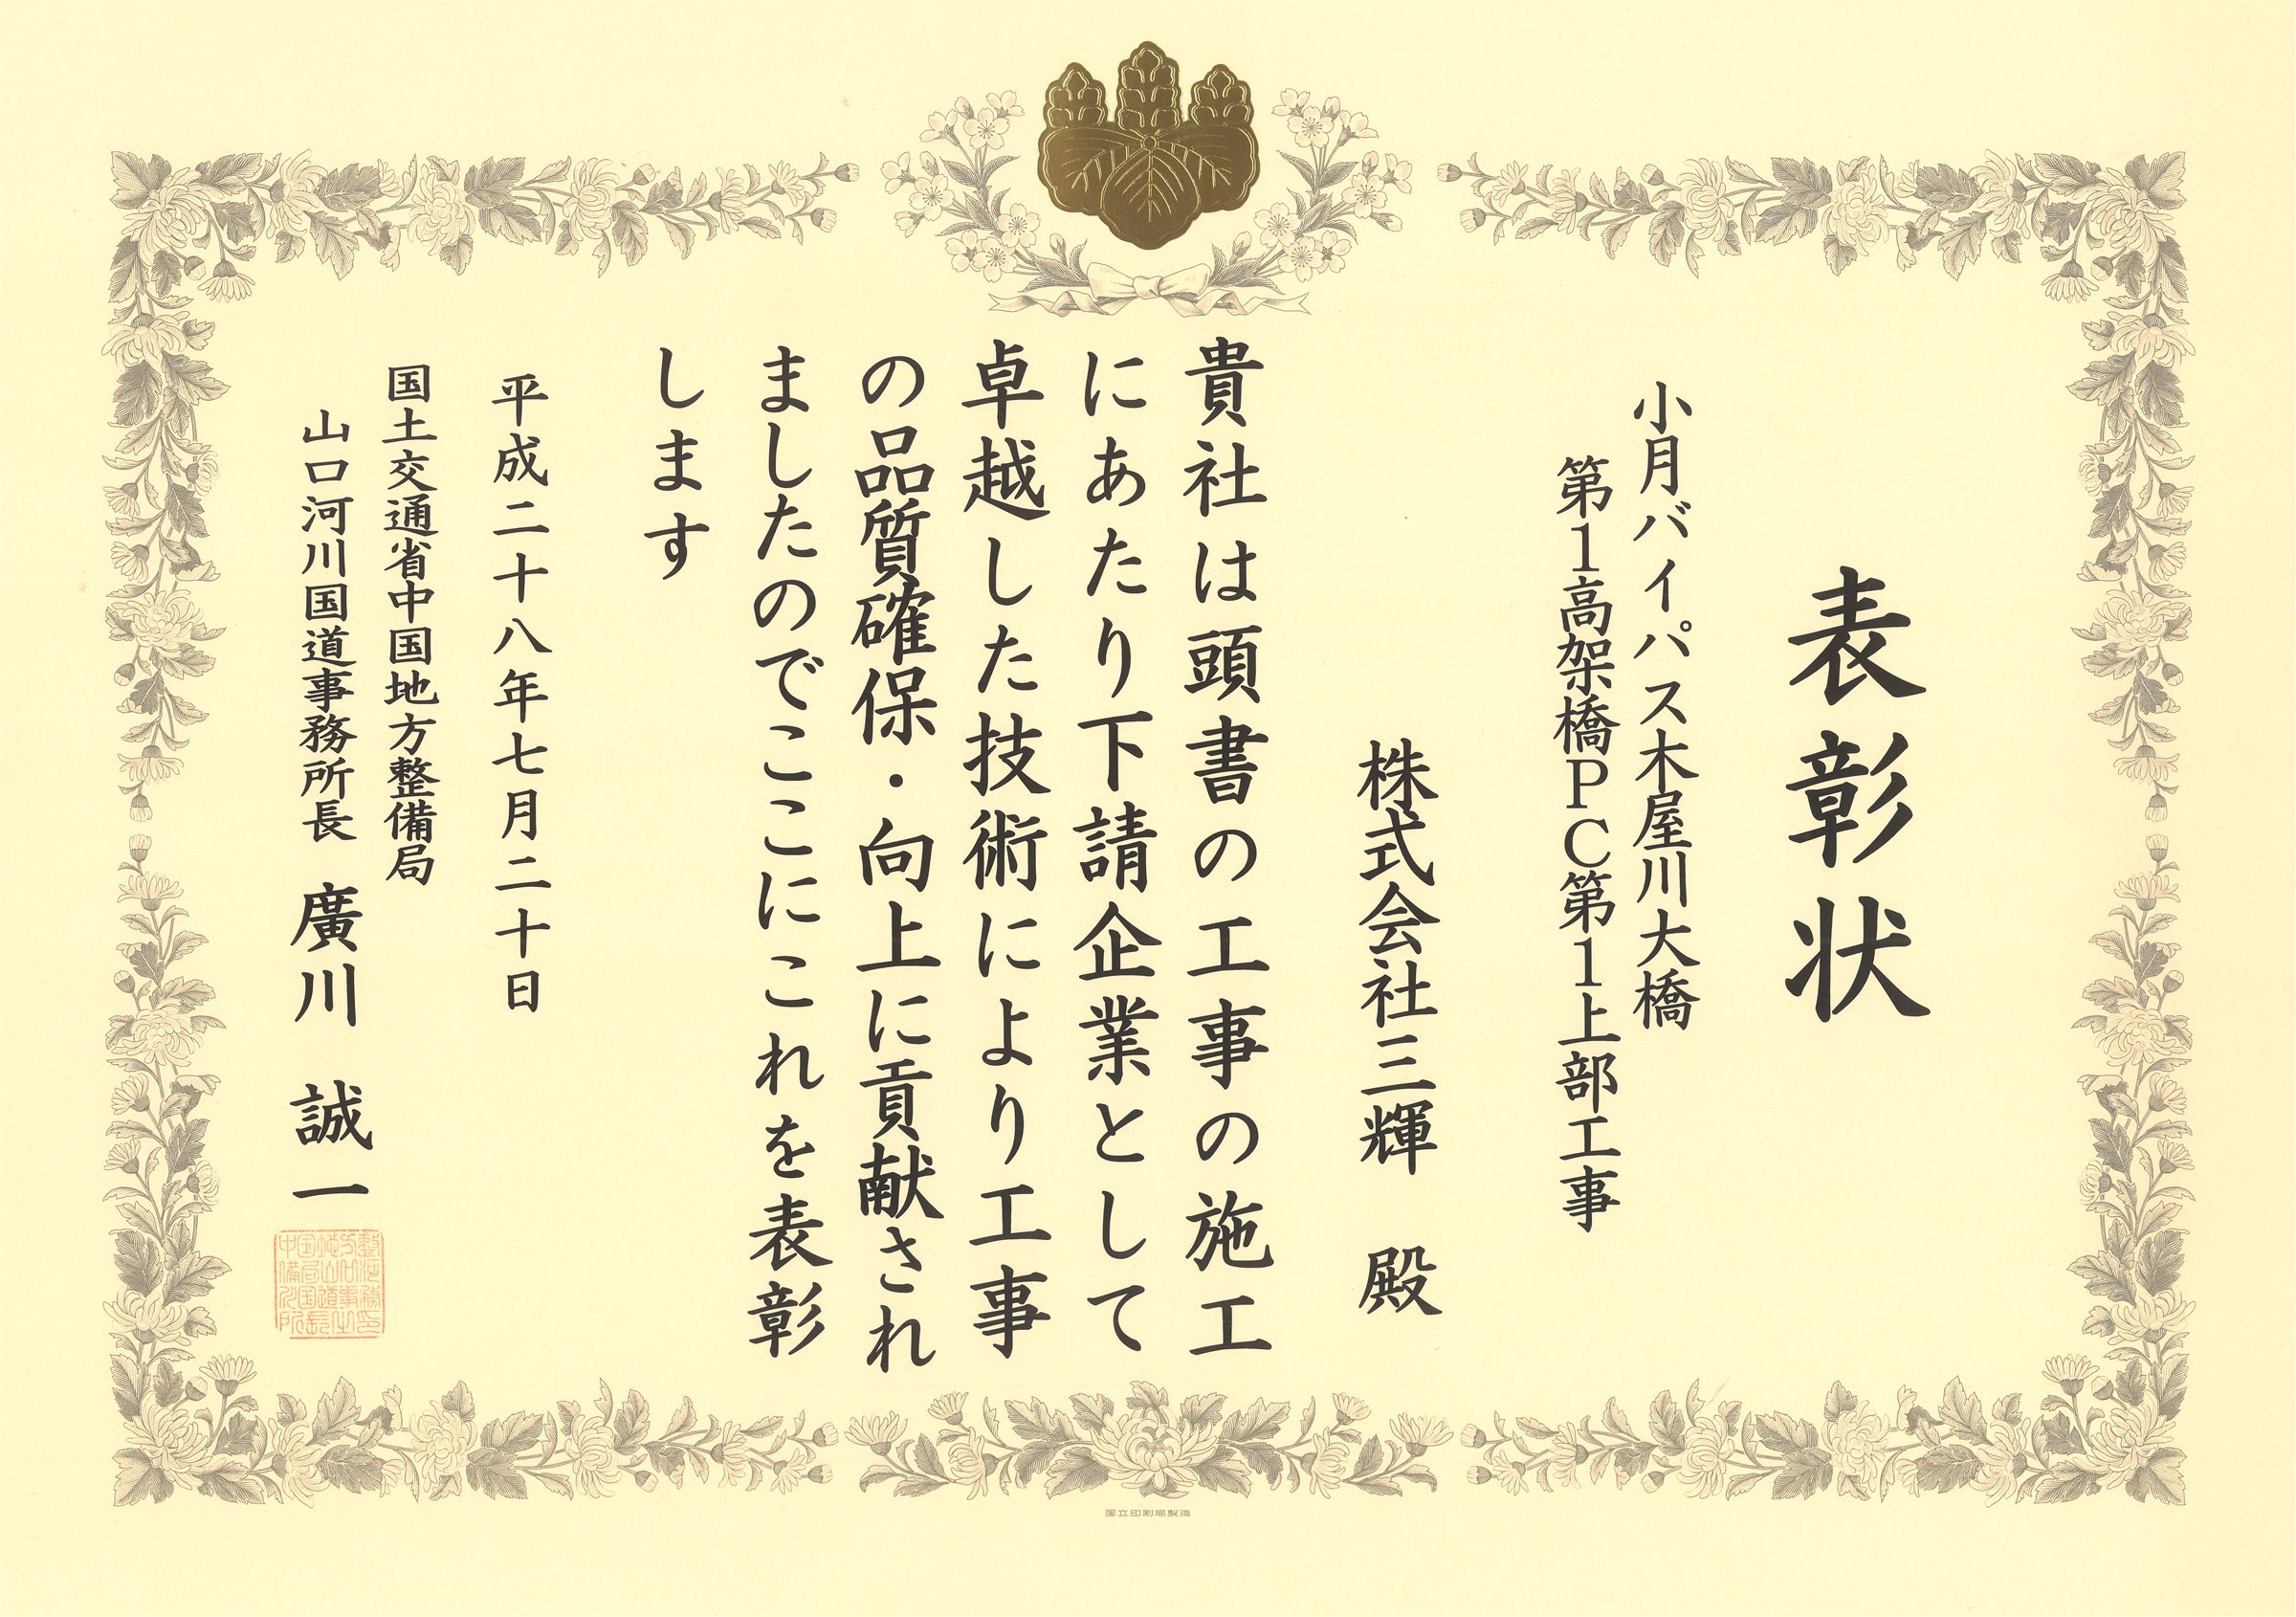 表彰状
小月バイパス木屋川大橋
第1高架橋PC第1上部工事
株式会社三輝　殿
貴社は頭書の工事の施工
にあたり下請企業として
卓越した技術により工事
の品質確保・向上に貢献され
ましたのでここにこれを表彰
します
平成二十八年七月二十日
国土交通省中国地方整備局
山口河川国道事務所長　廣川　誠一
国立印刷局製造